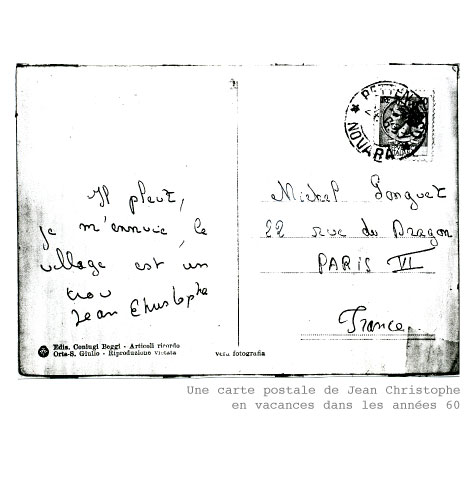 PETTENASCO
NOVARA
Il pleut,
je m'ennuie, le
village est un
trou
Jean Christophe
Michel Longuet
22 rue du Dragon
PARIS VI
France
Edis. Coniugi Boggi - Articoli ricordo
Orta-S. Giulio - Riproduzione vietata
vera fotografia
Une carte postale de Jean Christophe
en vacances dans les années 60